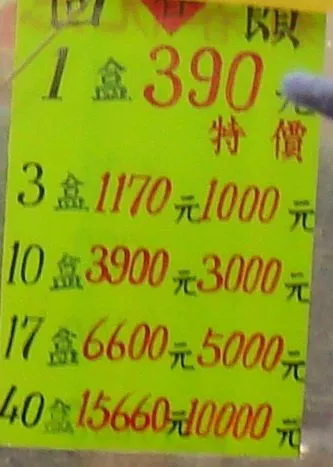 1 盒 390 元
特價
3 盒 1170 元 1000 元
10 盒 3900 元 3000 元
17 盒 6600 元 5000 元
40 盒 15660元 10000 元